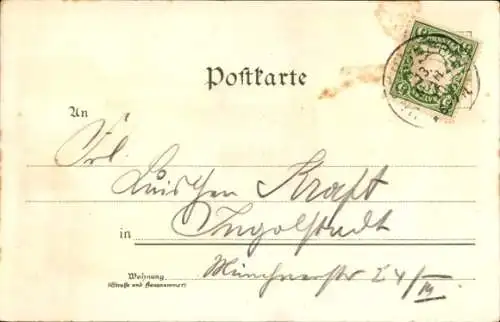 Postkarte
An
Frl.
Luischen Kraft
in Ingolstadt
Wohnung
(Straße und Hausnummer)
Münchnerstr 24/III